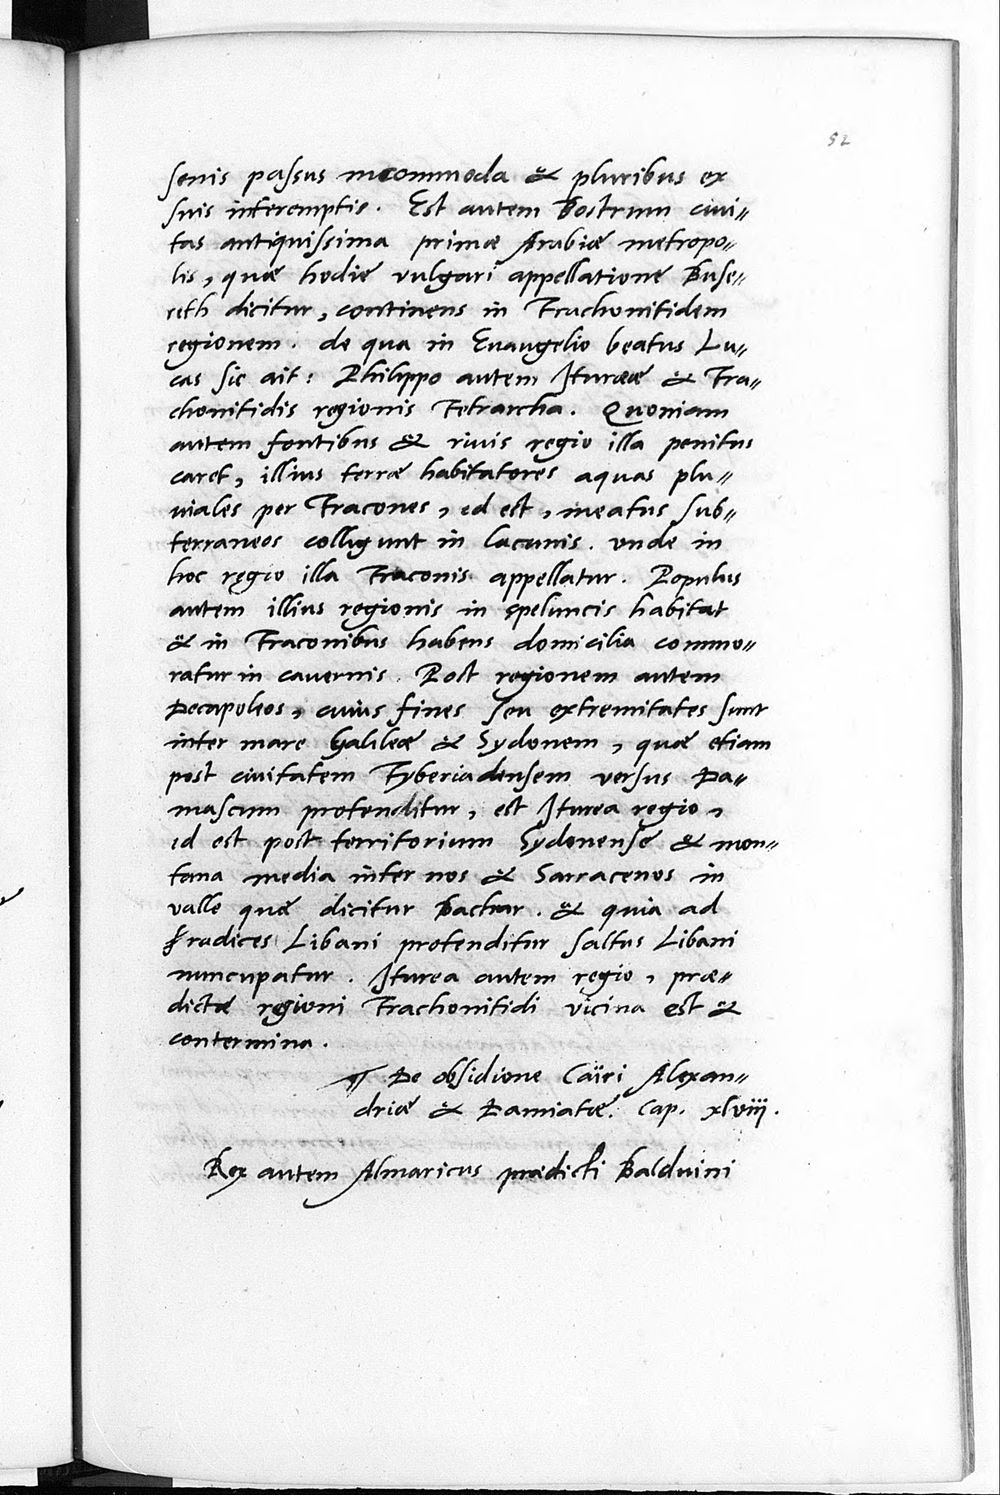 52
senis passus incommoda & pluribus ex
suis interemptis. Est autem Bostrum civi„
tas antiquissima primæ Arabiæ metropo„
lis, quæ hodie vulgari appellatione Buse„
reth dicitur, continens in Trachonitidem
regionem. de qua in Evangelio beatus Lu„
cas sic ait: Philippo autem Ituræe & Tra„
chonitidis regionis Tetrarcha. Quoniam
autem fontibus & rivis regio illa penitus
caret, illius terræ habitatores aquas plu„
viales per Tracones, id est, meatus sub„
terraneos colligunt in lacunis. unde in
hoc regio illa Traconis appellatur. Populus
autem illius regionis in speluncis habitat
& in Traconibus habens domicilia commo„
ratur in cavernis. Post regionem autem
Decapoleos, cuius fines seu extremitates sunt
inter mare Galileæ & Sydonem, quæ etiam
post civitatem Tyberiadensem versus Da„
mascum protenditur, est Iturea regio,
id est post territorium Sydonense & mon„
tana media inter nos & Sarracenos in
valle quæ dicitur Bachar. & quia ad
radices Libani protenditur saltus Libani
nuncupatur. Iturea autem regio, præ„
dictæ regioni Trachonitidi vicina est &
contermina.
¶ De obsidione Caïri Alexan„
driæ & Damiatæ. Cap. xlviij.
Rex autem Almaricus prædicti Balduini